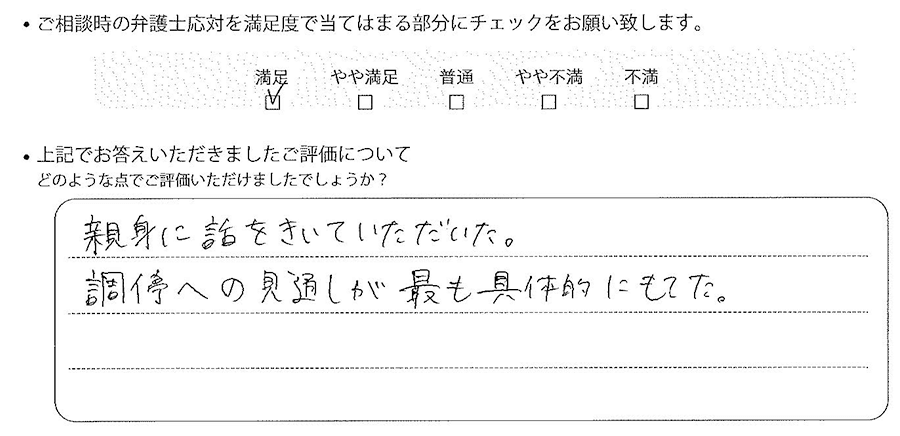 • ご相談時の弁護士応対を満足度で当てはまる部分にチェックをお願い致します。
満足 やや満足 普通 やや不満 不満
☑ □ □ □ □
• 上記でお答えいただきましたご評価について
どのような点でご評価いただけましたでしょうか？
親身に話をきいていただいた。
調停への見通しが最も具体的にもてた。